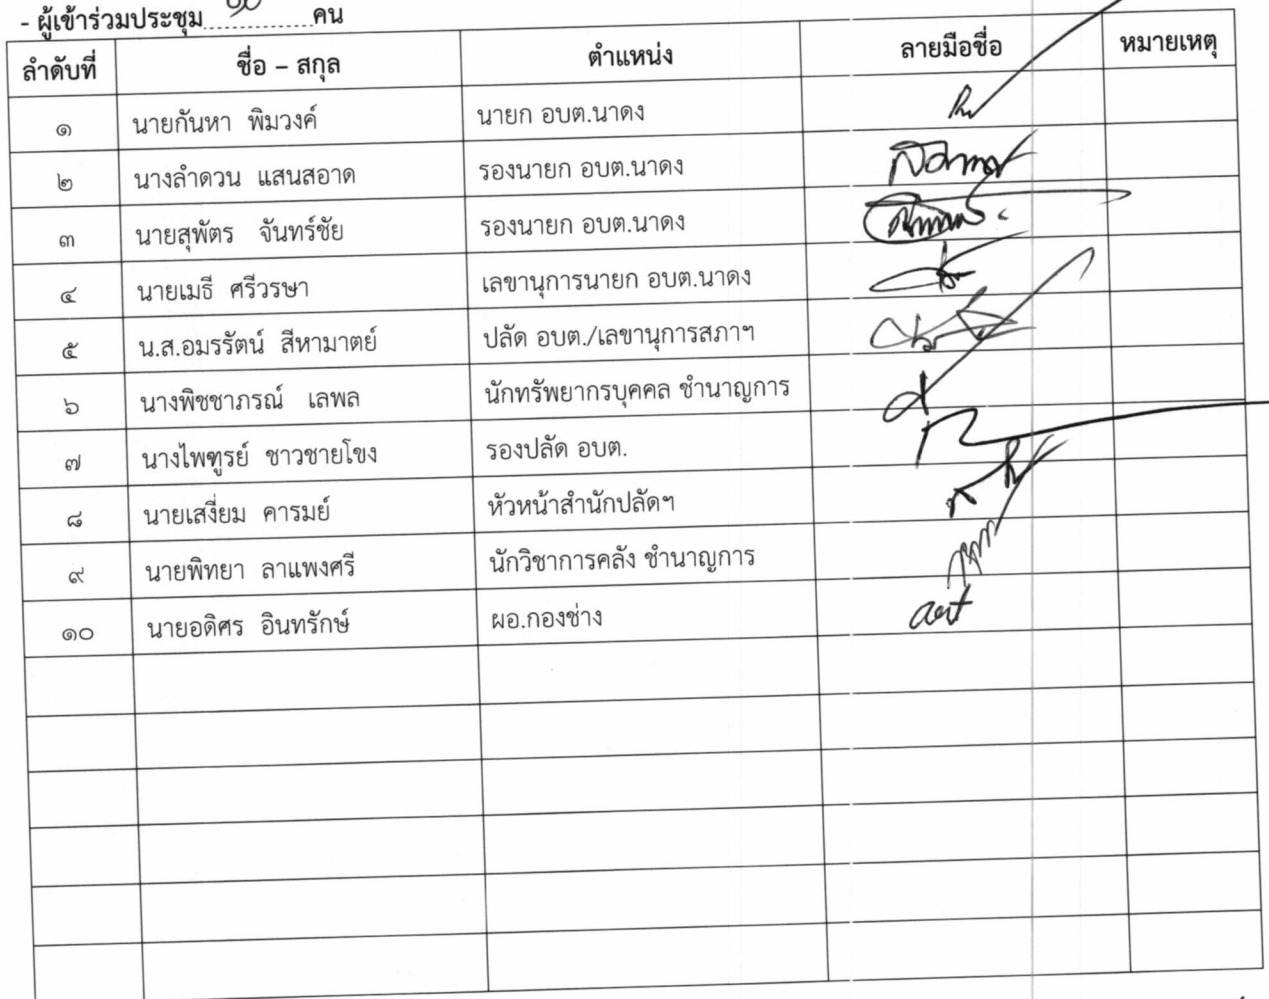 - ผู้เข้าร่วมประชุม ๑๐ คน
ลำดับที่ ชื่อ – สกุล ตำแหน่ง ลายมือชื่อ หมายเหตุ
๑ นายกันหา พิมวงค์ นายก อบต.นาดง
๒ นางลำดวน แสนสอาด รองนายก อบต.นาดง
๓ นายสุพัตร จันทร์ชัย รองนายก อบต.นาดง
๔ นายเมธี ศรีวรษา เลขานุการนายก อบต.นาดง
๕ น.ส.อมรรัตน์ สีหามาตย์ ปลัด อบต./เลขานุการสภาฯ
๖ นางพิชชาภรณ์ เลพล นักทรัพยากรบุคคล ชำนาญการ
๗ นางไพฑูรย์ ชาวชายโขง รองปลัด อบต.
๘ นายเสงี่ยม คารมย์ หัวหน้าสำนักปลัดฯ
๙ นายพิทยา ลาแพงศรี นักวิชาการคลัง ชำนาญการ
๑๐ นายอดิศร อินทรักษ์ ผอ.กองช่าง art